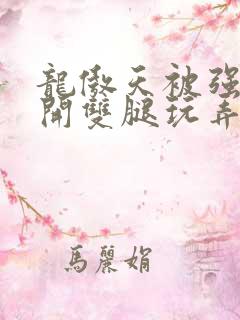 龍傲天被强
開雙腿玩弄
馬麗娟